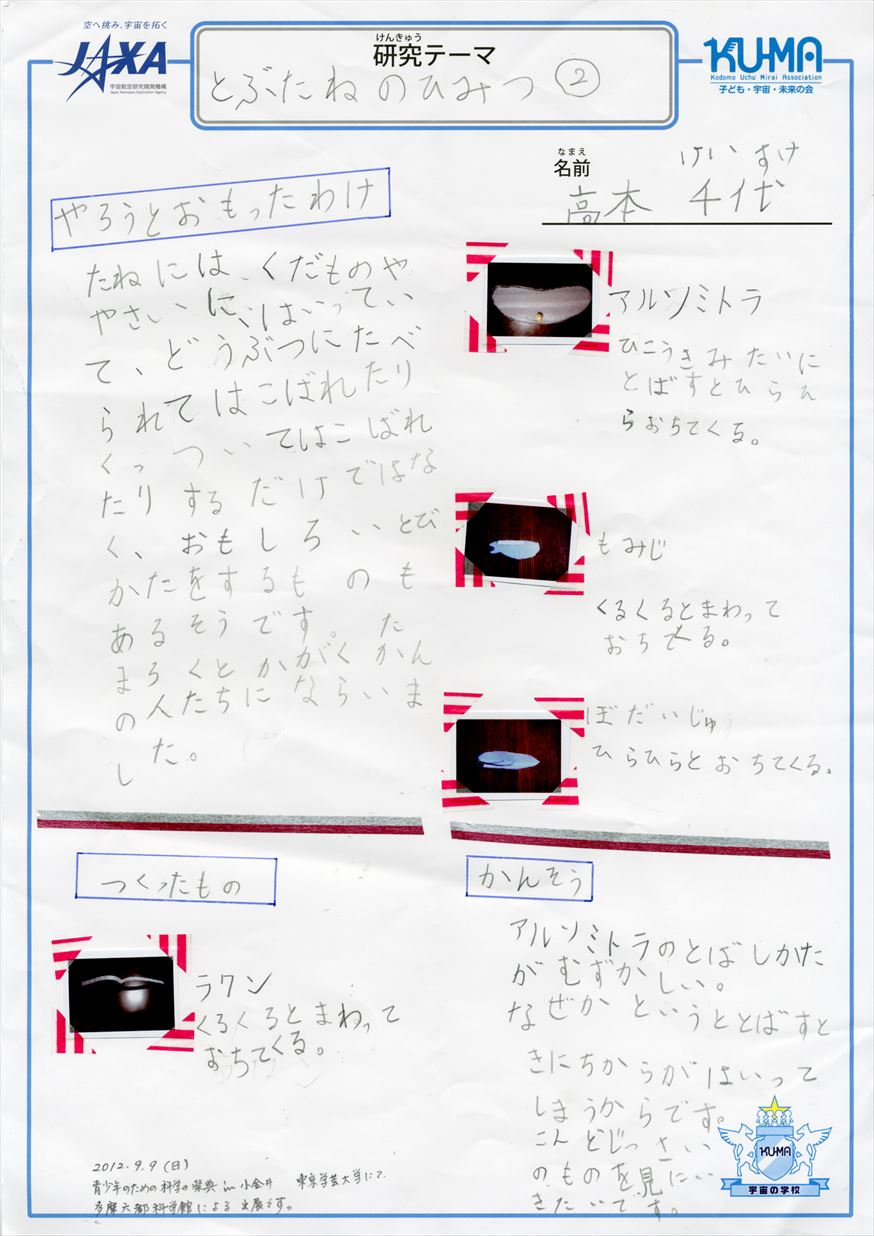 空へ挑み、宇宙を拓く
JAXA
宇宙航空研究開発機構
Japan Aerospace Exploration Agency
けんきゅう
研究テーマ
とぶたねのひみつ②
KUMA
Kodomo Uchu Mirai Association
子ども・宇宙・未来の会
なまえ
名前
けいすけ
高本
やろうとおもったわけ
たねには、くだものや
やさいに、はいってい
て、どうぶつにたべ
られてはこばれたり
くっついてはこばれ
たりするだけではな
く、おもしろいとび
かたをするものも
あるそうです。た
まろくとかがくかん
の人たちにならいま
した。
アルソミトラ
ひこうきみたいに
とばすとひらひ
らおちてくる。
もみじ
くるくるとまわって
おちてくる。
ぼだいじゅ
ひらひらとおちてくる。
つくったもの
ラワン
くるくるとまわって
おちてくる。
2012.9.9(日)
青少年のための科学の祭典 in 小金井 東京学芸大学にて
多摩六都科学館による出展です。
かんそう
アルソミトラのとばしかた
がむずかしい。
なぜかというととばすと
きにちからがはいって
しまうからです。
こんどじっさい
のものを見にい
きたいです。
KUMA
宇宙の学校